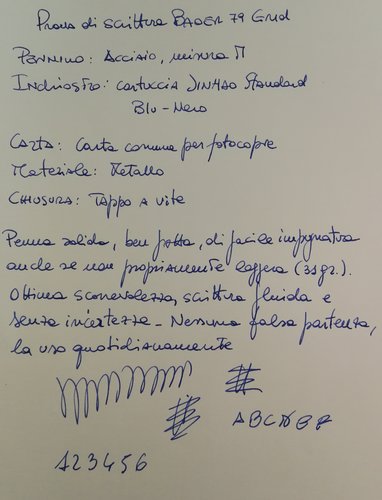 Prova di scrittura BAOER 79 Grid
PENNINO: Acciaio, misura M
INCHIOSTRO: cartuccia JINHAO Standard
Blu-Nero
CARTA: Carta comune per fotocopie
Materiale: Metallo
CHIUSURA: Tappo a vite
Penna solida, ben fatta, di facile impugnatura
anche se non propriamente leggera (33gr.).
Ottima scorrevolezza, scrittura fluida e
senza incertezze - Nessuna falsa partenza,
la uso quotidianamente
ABC
123456